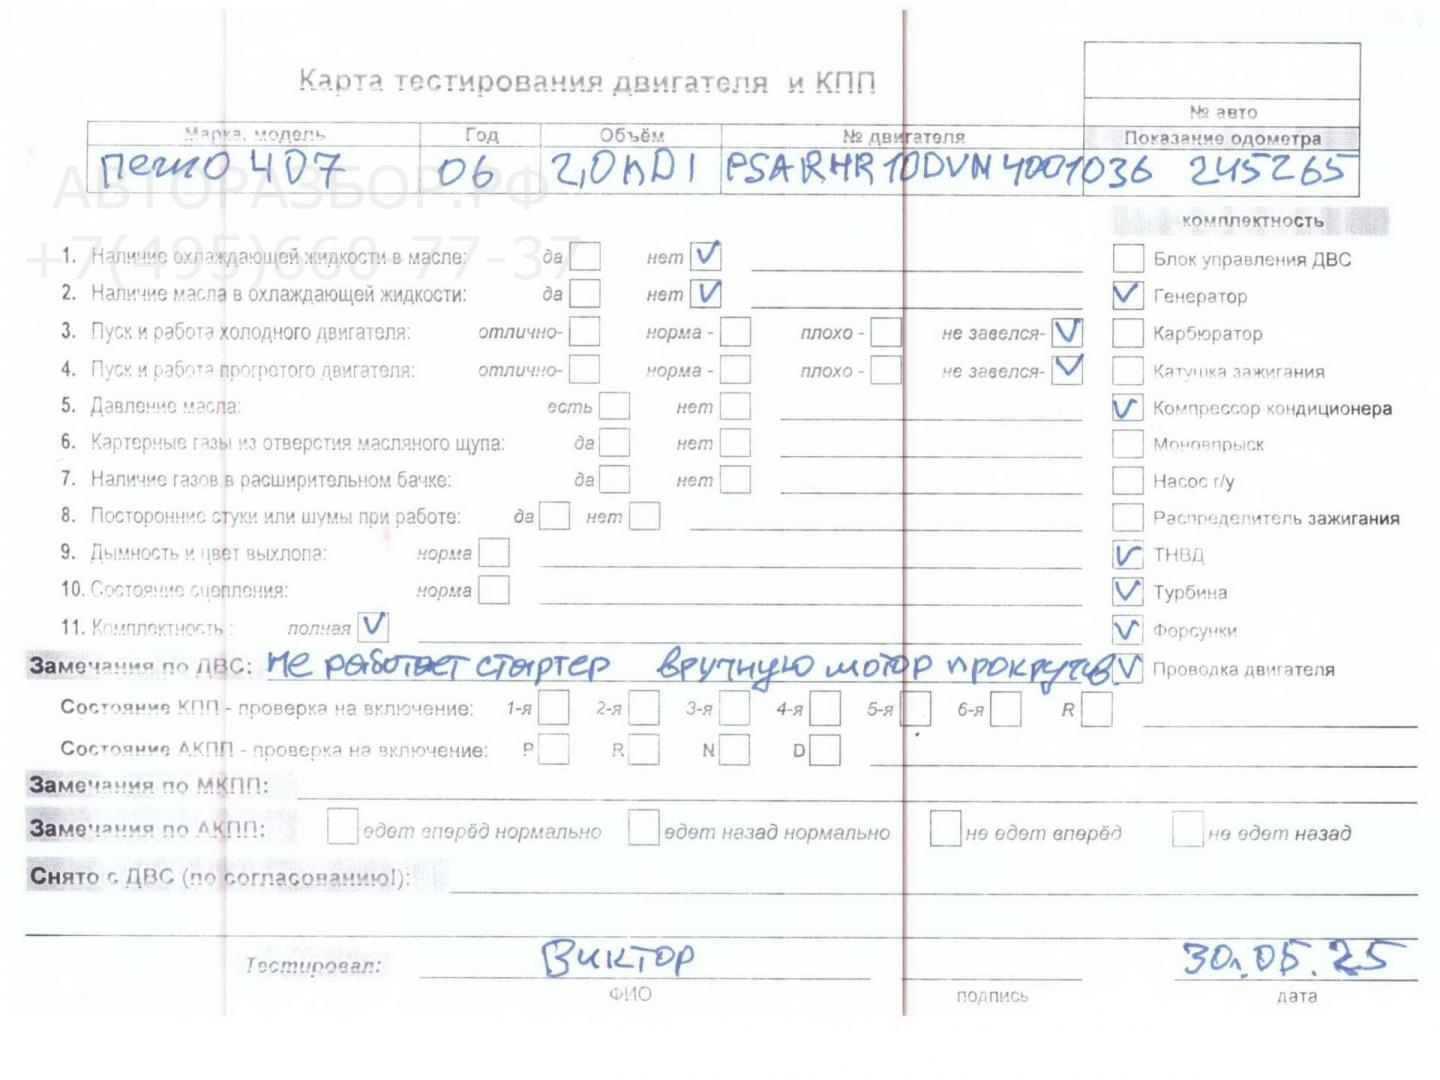 Карта тестирования двигателя и КПП
№ авто
Марка, модель Год Объём № двигателя Показание одометра
пежо 407 06 2,0 HDI PSARHR10DVN4001036 245265
АВТОРАЗБОР.РФ
+7(495)660-77-37
комплектность
1. Наличие охлаждающей жидкости в масле: да нет Блок управления ДВС
2. Наличие масла в охлаждающей жидкости: да нет Генератор
3. Пуск и работа холодного двигателя: отлично- норма - плохо - не завелся- Карбюратор
4. Пуск и работа прогретого двигателя: отлично- норма - плохо - не завелся- Катушка зажигания
5. Давление масла: есть нет Компрессор кондиционера
6. Картерные газы из отверстия масляного щупа: да нет Моновпрыск
7. Наличие газов в расширительном бачке: да нет Насос г/у
8. Посторонние стуки или шумы при работе: да нет Распределитель зажигания
9. Дымность и цвет выхлопа: норма ТНВД
10. Состояние сцепления: норма Турбина
11. Комплектность : полная Форсунки
Замечания по ДВС: не работает стартер вручную мотор прокрутив Проводка двигателя
Состояние КПП - проверка на включение: 1-я 2-я 3-я 4-я 5-я 6-я R
Состояние АКПП - проверка на включение: P R N D
Замечания по МКПП:
Замечания по АКПП: едет вперёд нормально едет назад нормально не едет вперёд не едет назад
Снято с ДВС (по согласованию!):
Тестировал: Виктор 30.05.25
ФИО подпись дата